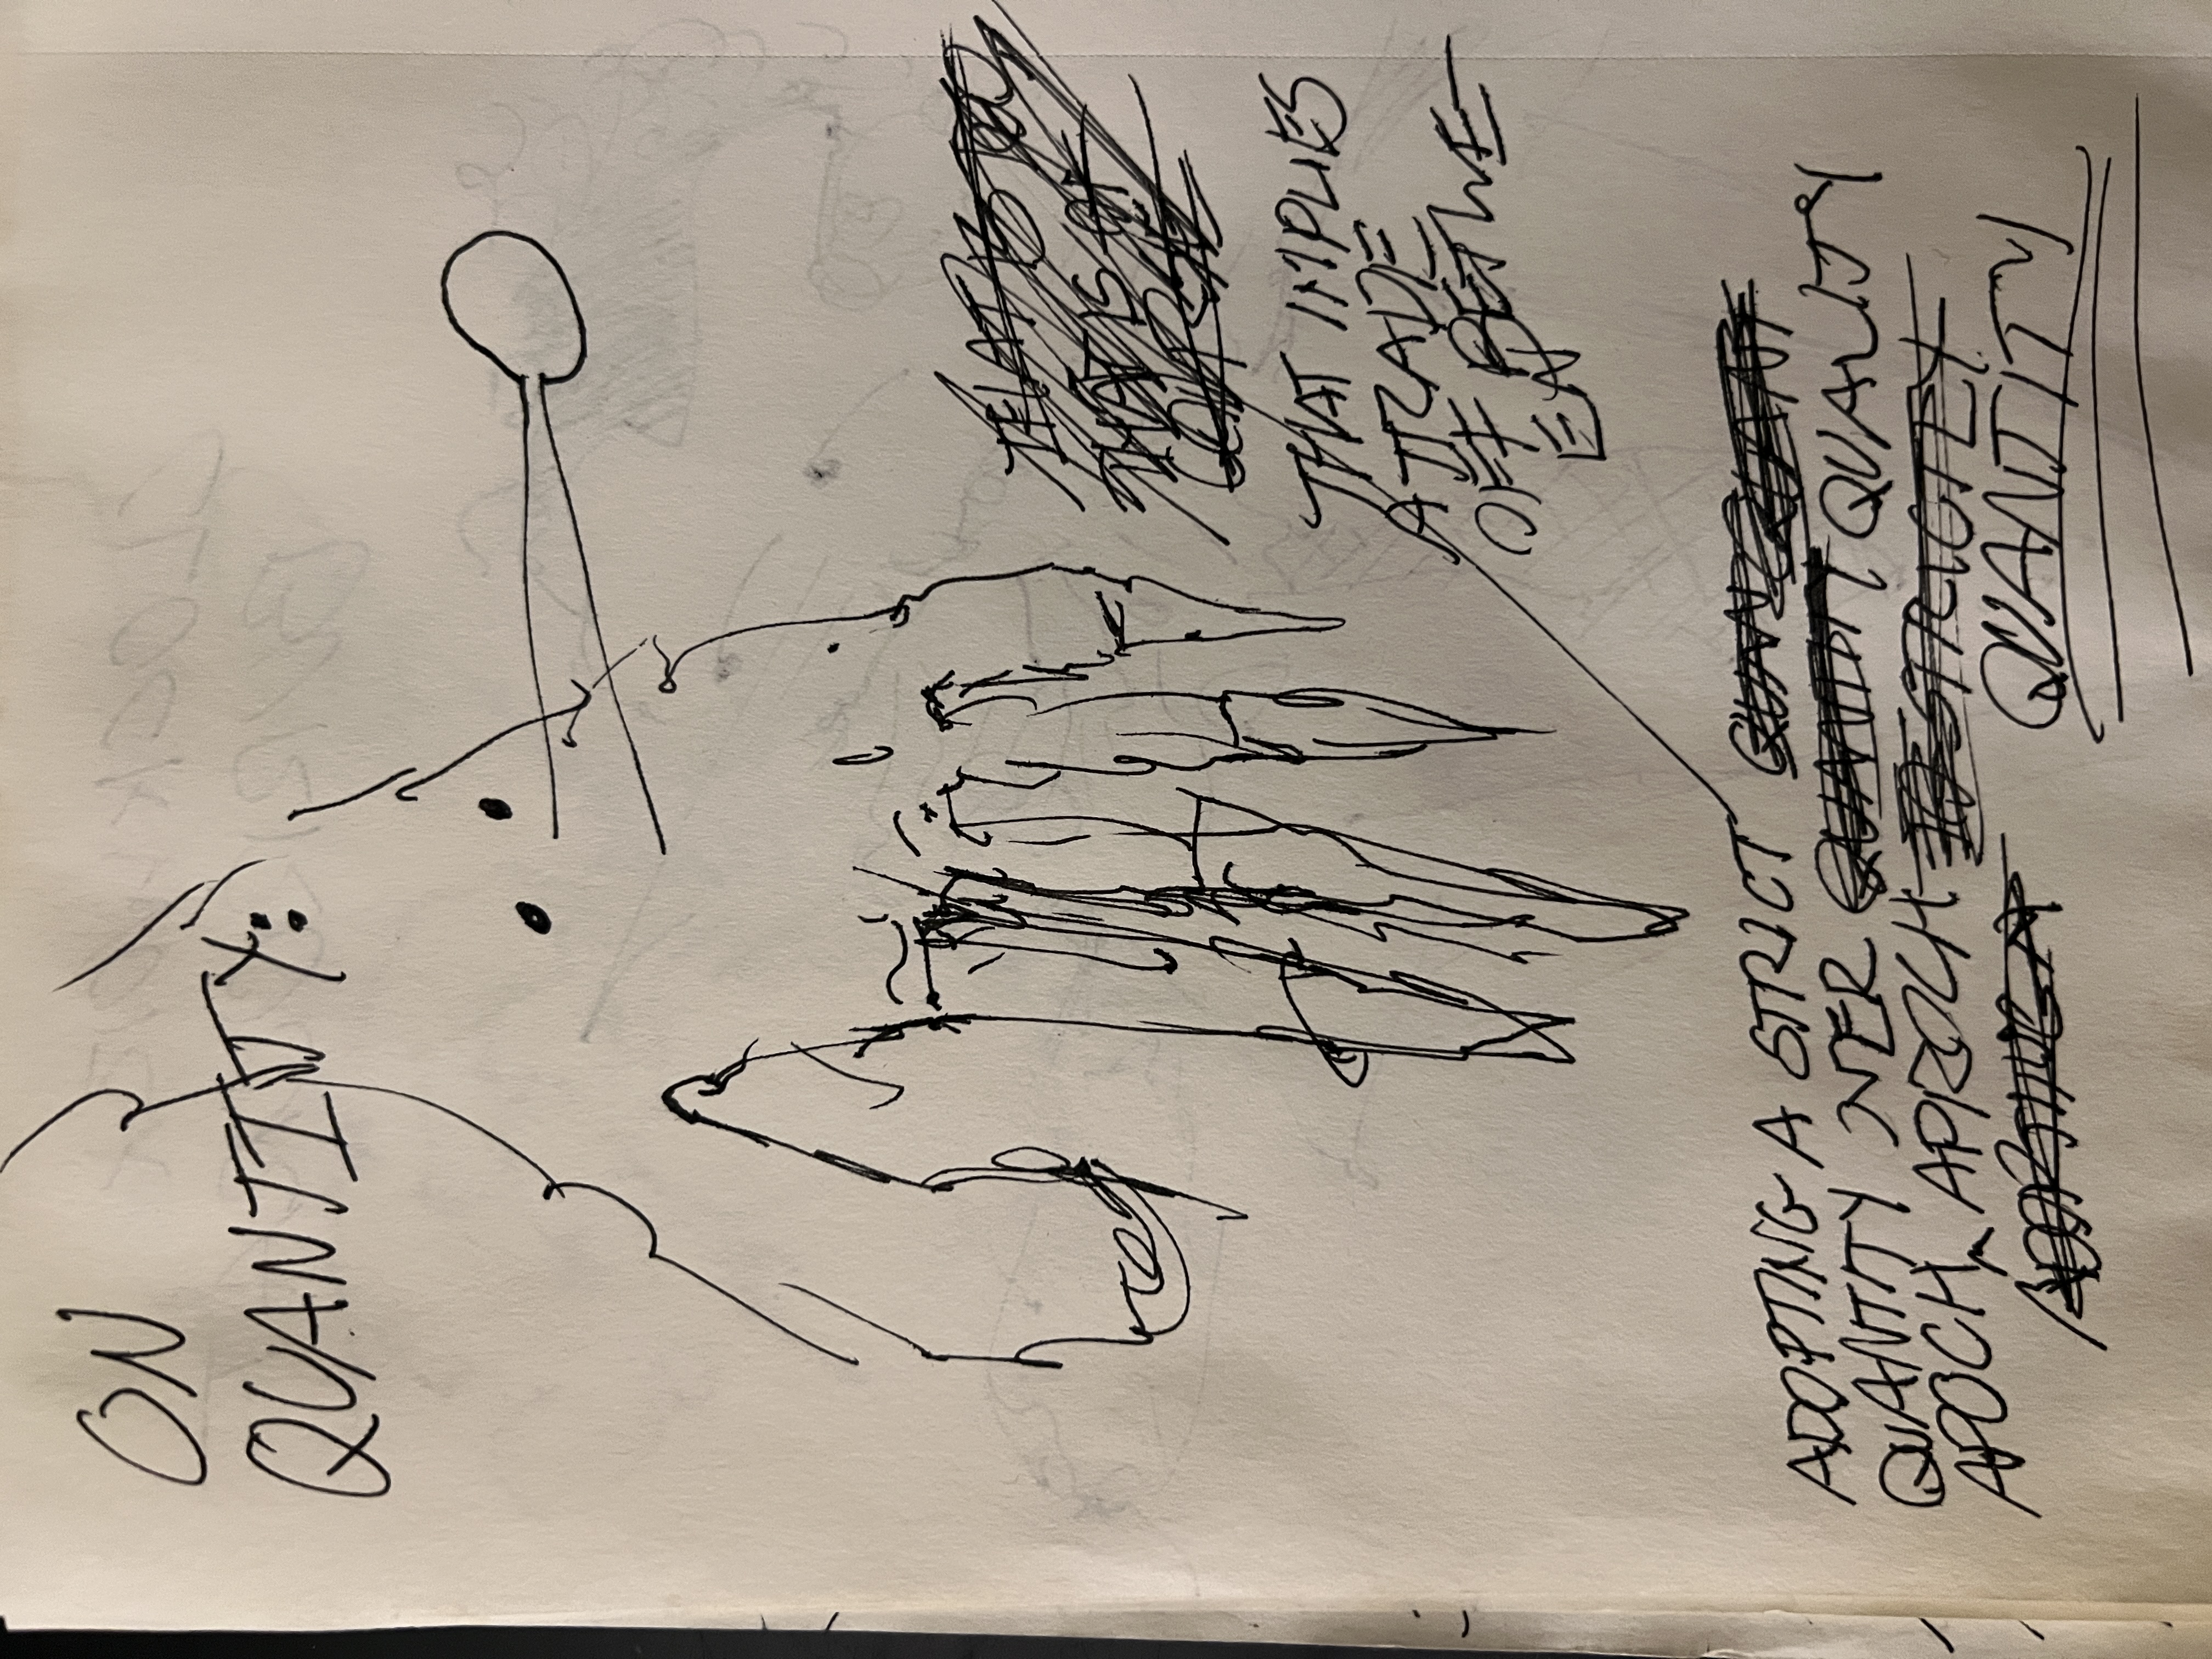 ON
QUANTITY:
THAT IS
THAT IS OF
COURSE
THAT IMPLIES
A TRADE
OFF BETWE
EN
ADOPTING A STRICT QUAN QUANT
QUANTITY OVER QUANTITY QUALITY
APOCH, APROCH TO STRICTLY
ADOPTING A QUANTITY